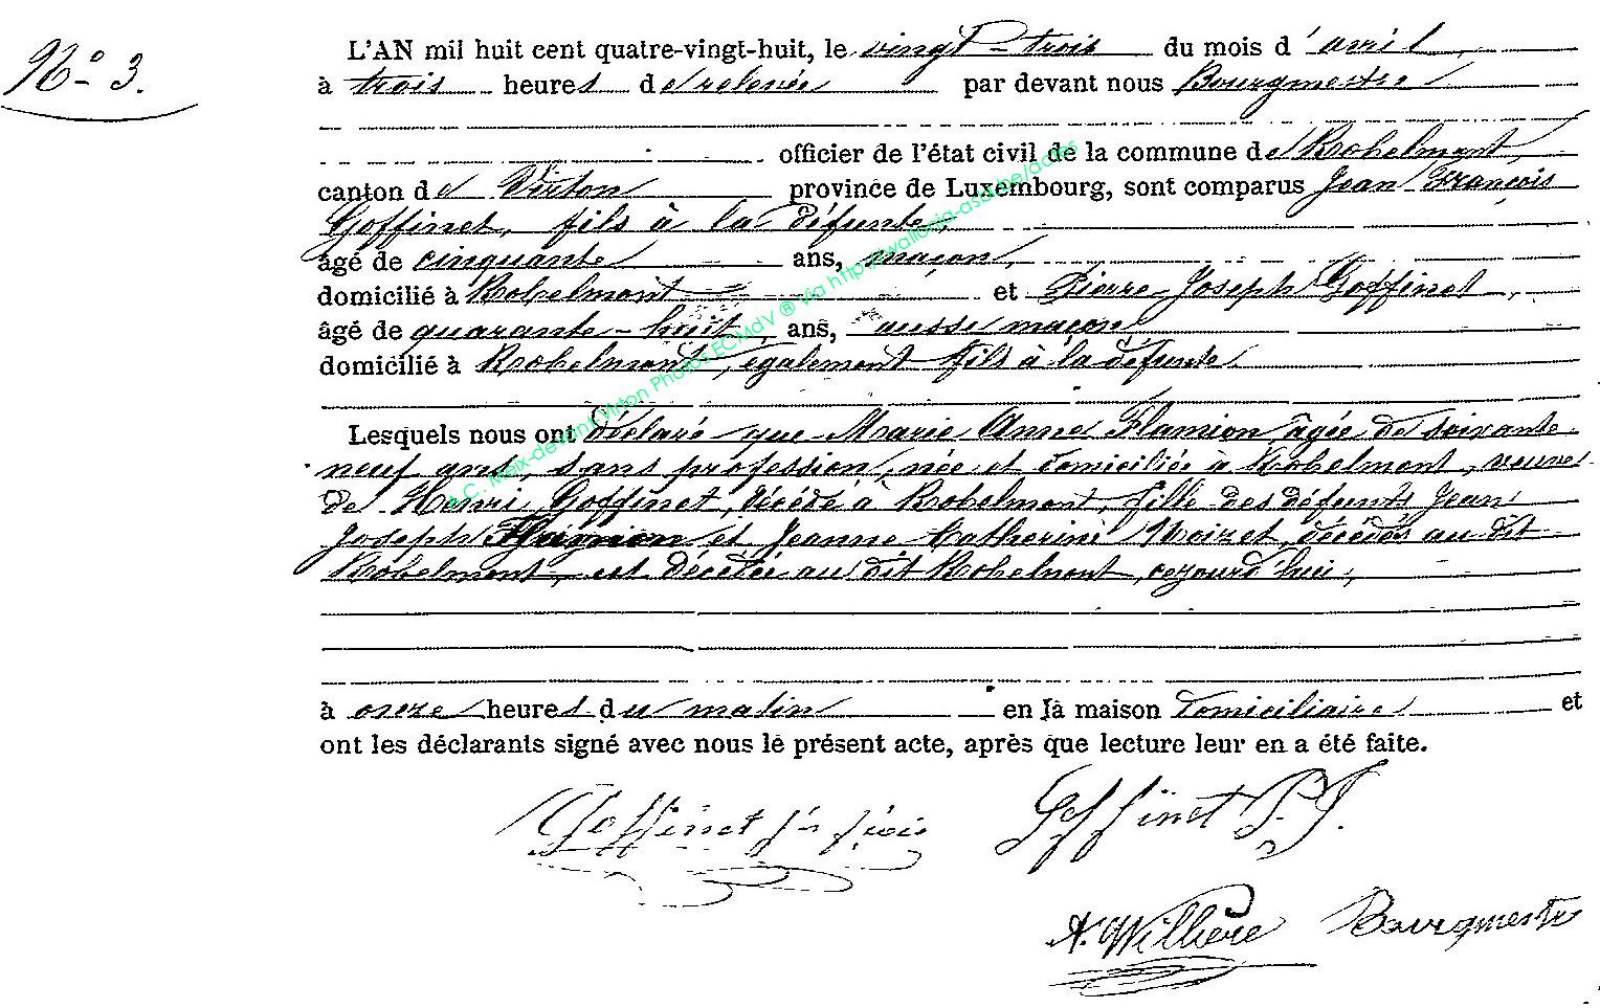 N° 3.
L'AN mil huit cent quatre-vingt-huit, le vingt-trois du mois d'avril,
à trois heures de relevée par devant nous Bourgmestre
officier de l'état civil de la commune de Robelmont,
canton de Virton province de Luxembourg, sont comparus Jean François
Goffinet, fils à la défunte,
âgé de cinquante ans, maçon,
domicilié à Robelmont et Pierre-Joseph Goffinet,
âgé de quarante-huit ans, aussi maçon
domicilié à Robelmont, également fils à la défunte.
Lesquels nous ont déclaré que Marie Anne Flamion âgée de soixante
neuf ans, sans profession, née et domiciliée à Robelmont, veuve
de Henri Goffinet, décédé à Robelmont, fille des défunts Jean
Joseph Flamion et Jeanne Catherine Noizet, décédés au dit
Robelmont, est décédée au dit Robelmont, cejourd'hui,
à onze heures du matin en la maison domiciliaire et
ont les déclarants signé avec nous le présent acte, après que lecture leur en a été faite.
Goffinet Jn frçois
Goffinet P.J.
A. Willière Bourgmestre
A.C. Meix-devant-Virton Photos ECMdV ® via http://wallonia-asbl.be/actes